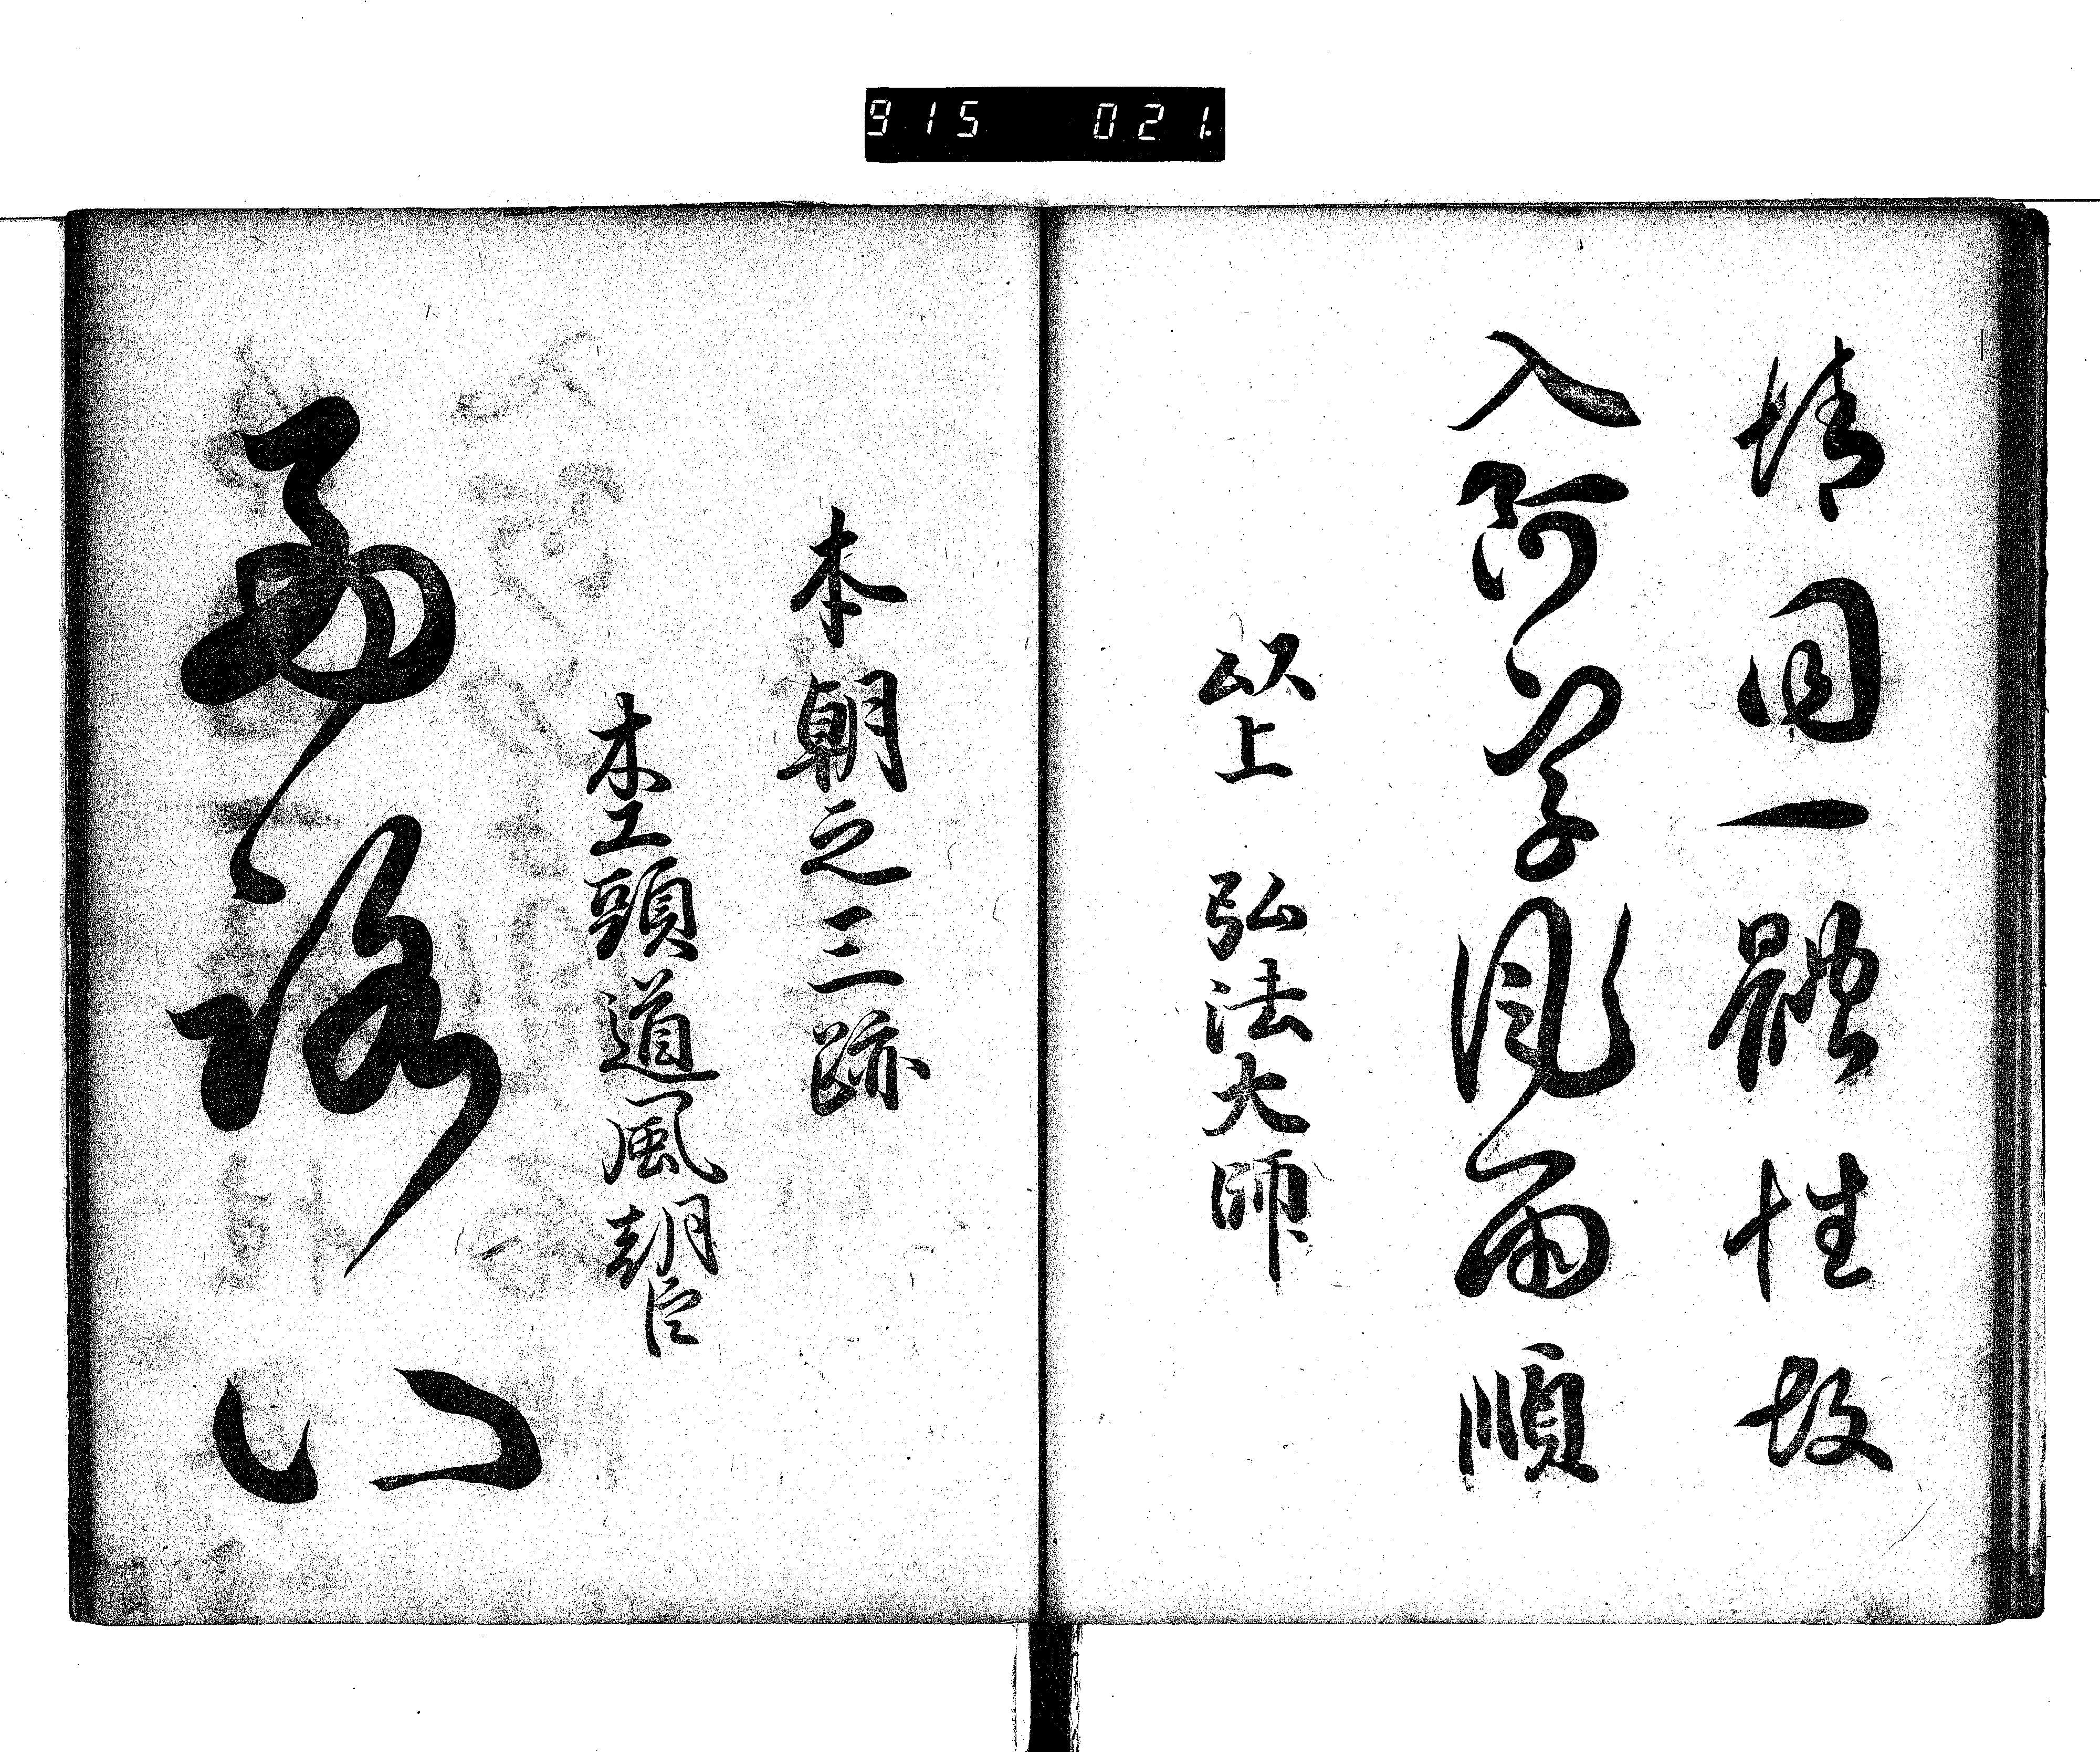 915 021
情同一體性故
入阿字風雨順
以上 弘法大師
本朝之三跡
木工頭道風朝臣